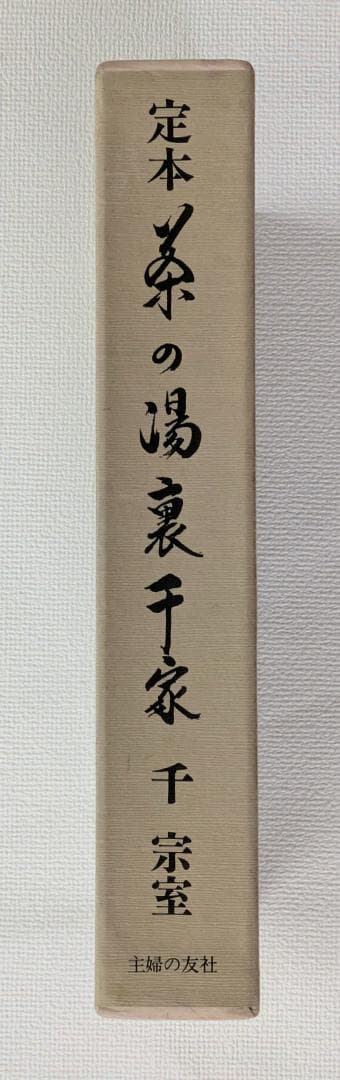 定本 茶の湯裏千家 千 宗室
主婦の友社